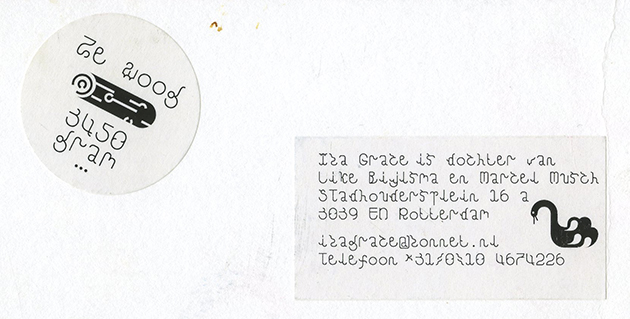 Ze woog
3450
gram
...
Iza Grace is dochter van
Like Bijlsma en Marcel Musch
Stadhoudersplein 16 a
3039 EN Rotterdam
izagrace@zonnet.nl
Telefoon +31/0\10 4674226